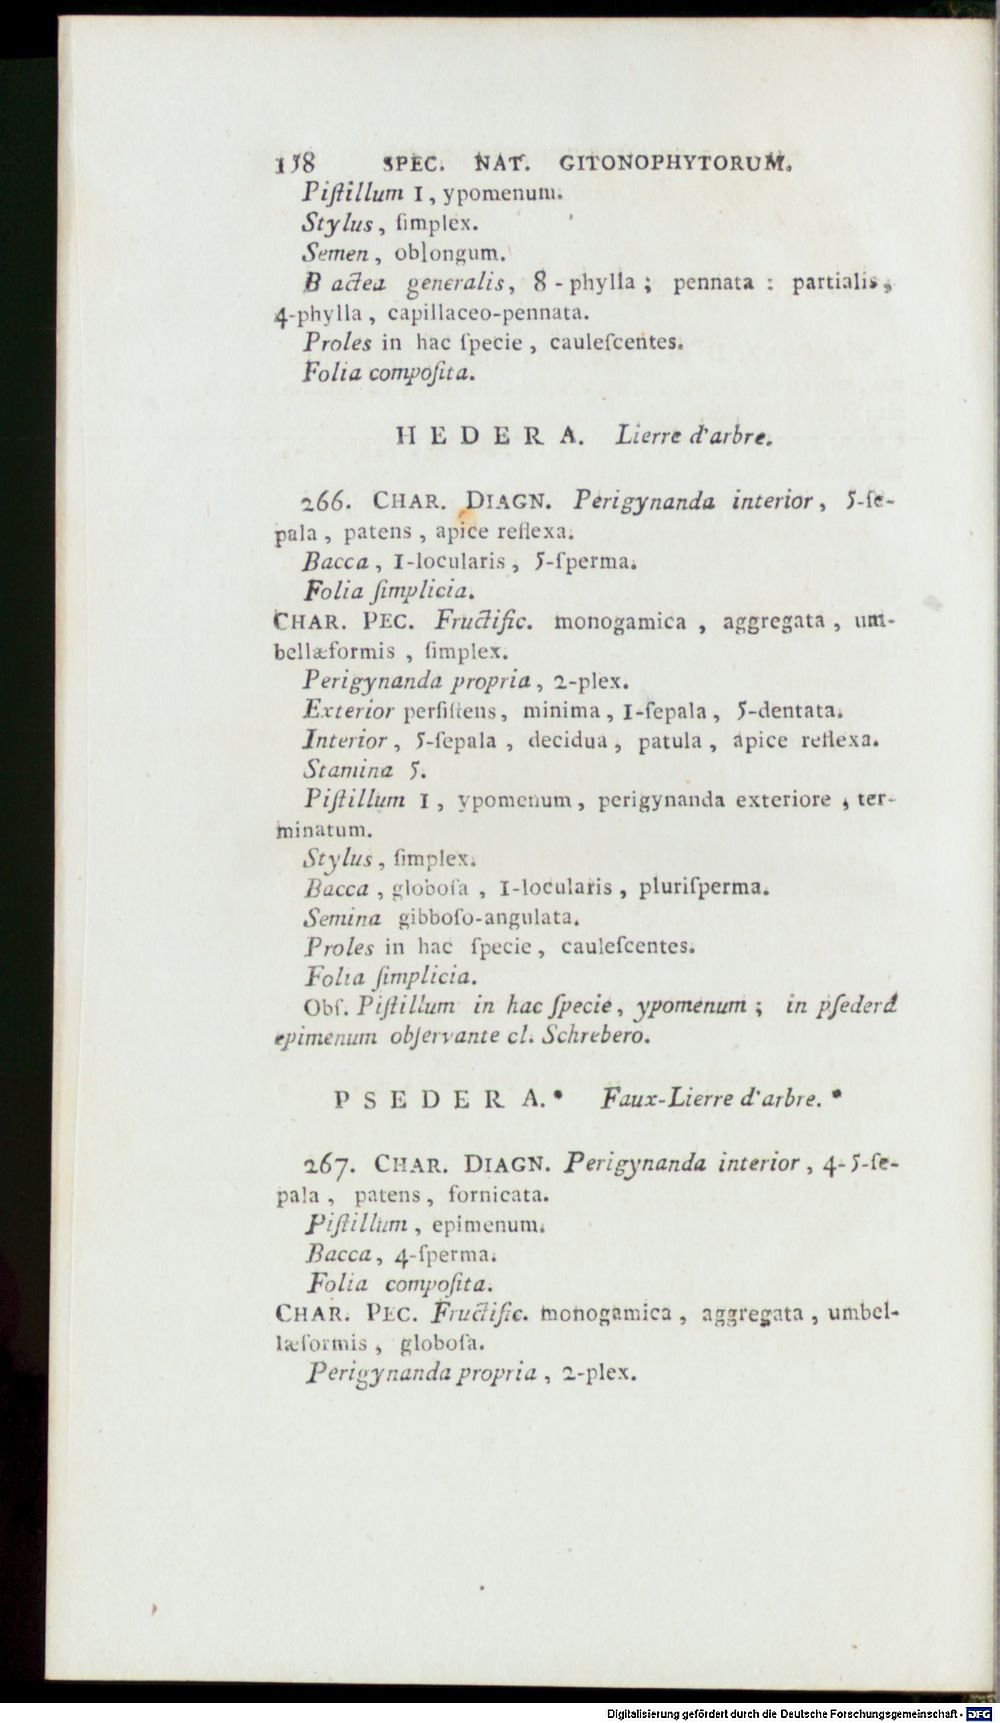 158 SPEC. NAT. GITONOPHYTORUM.
Piſtillum 1, ypomenum.
Stylus, ſimplex.
Semen, oblongum.
B actea generalis, 8-phylla; pennata: partialis,
4-phylla, capillaceo-pennata.
Proles in hac ſpecie, cauleſcentes.
Folia compoſita.
HEDERA. Lierre d'arbre.
266. CHAR. DIAGN. Perigynanda interior, 5-ſe-
pala, patens, apice reflexa.
Bacca, 1-locularis, 5-ſperma.
Folia ſimplicia.
CHAR. PEC. Fructific. monogamica, aggregata, um-
bellæformis, ſimplex.
Perigynanda propria, 2-plex.
Exterior perſiſtens, minima, 1-ſepala, 5-dentata.
Interior, 5-ſepala, decidua, patula, apice reflexa.
Stamina 5.
Piſtillum 1, ypomenum, perigynanda exteriore, ter-
minatum.
Stylus, ſimplex.
Bacca, globoſa, 1-locularis, pluriſperma.
Semina gibboſo-angulata.
Proles in hac ſpecie, cauleſcentes.
Folia ſimplicia.
Obſ. Piſtillum in hac ſpecie, ypomenum; in pſederâ
epimenum obſervante cl. Schrebero.
PSEDERA.* Faux-Lierre d'arbre.*
267. CHAR. DIAGN. Perigynanda interior, 4-5-ſe-
pala, patens, fornicata.
Piſtillum, epimenum.
Bacca, 4-ſperma.
Folia compoſita.
CHAR. PEC. Fructific. monogamica, aggregata, umbel-
læformis, globoſa.
Perigynanda propria, 2-plex.
Digitalisierung gefördert durch die Deutsche Forschungsgemeinschaft - DFG